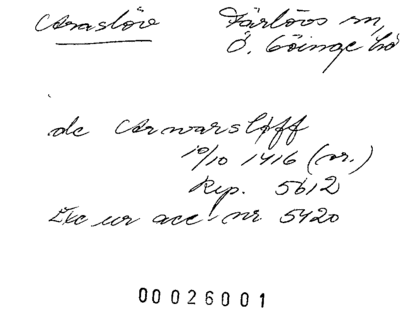 Araslöv Färlövs sn,
Ö. Göinge hd
de Arwarsløff
10/10 1416 (or.)
Rep. 5612
Exc ur acc. nr 5420
00026001